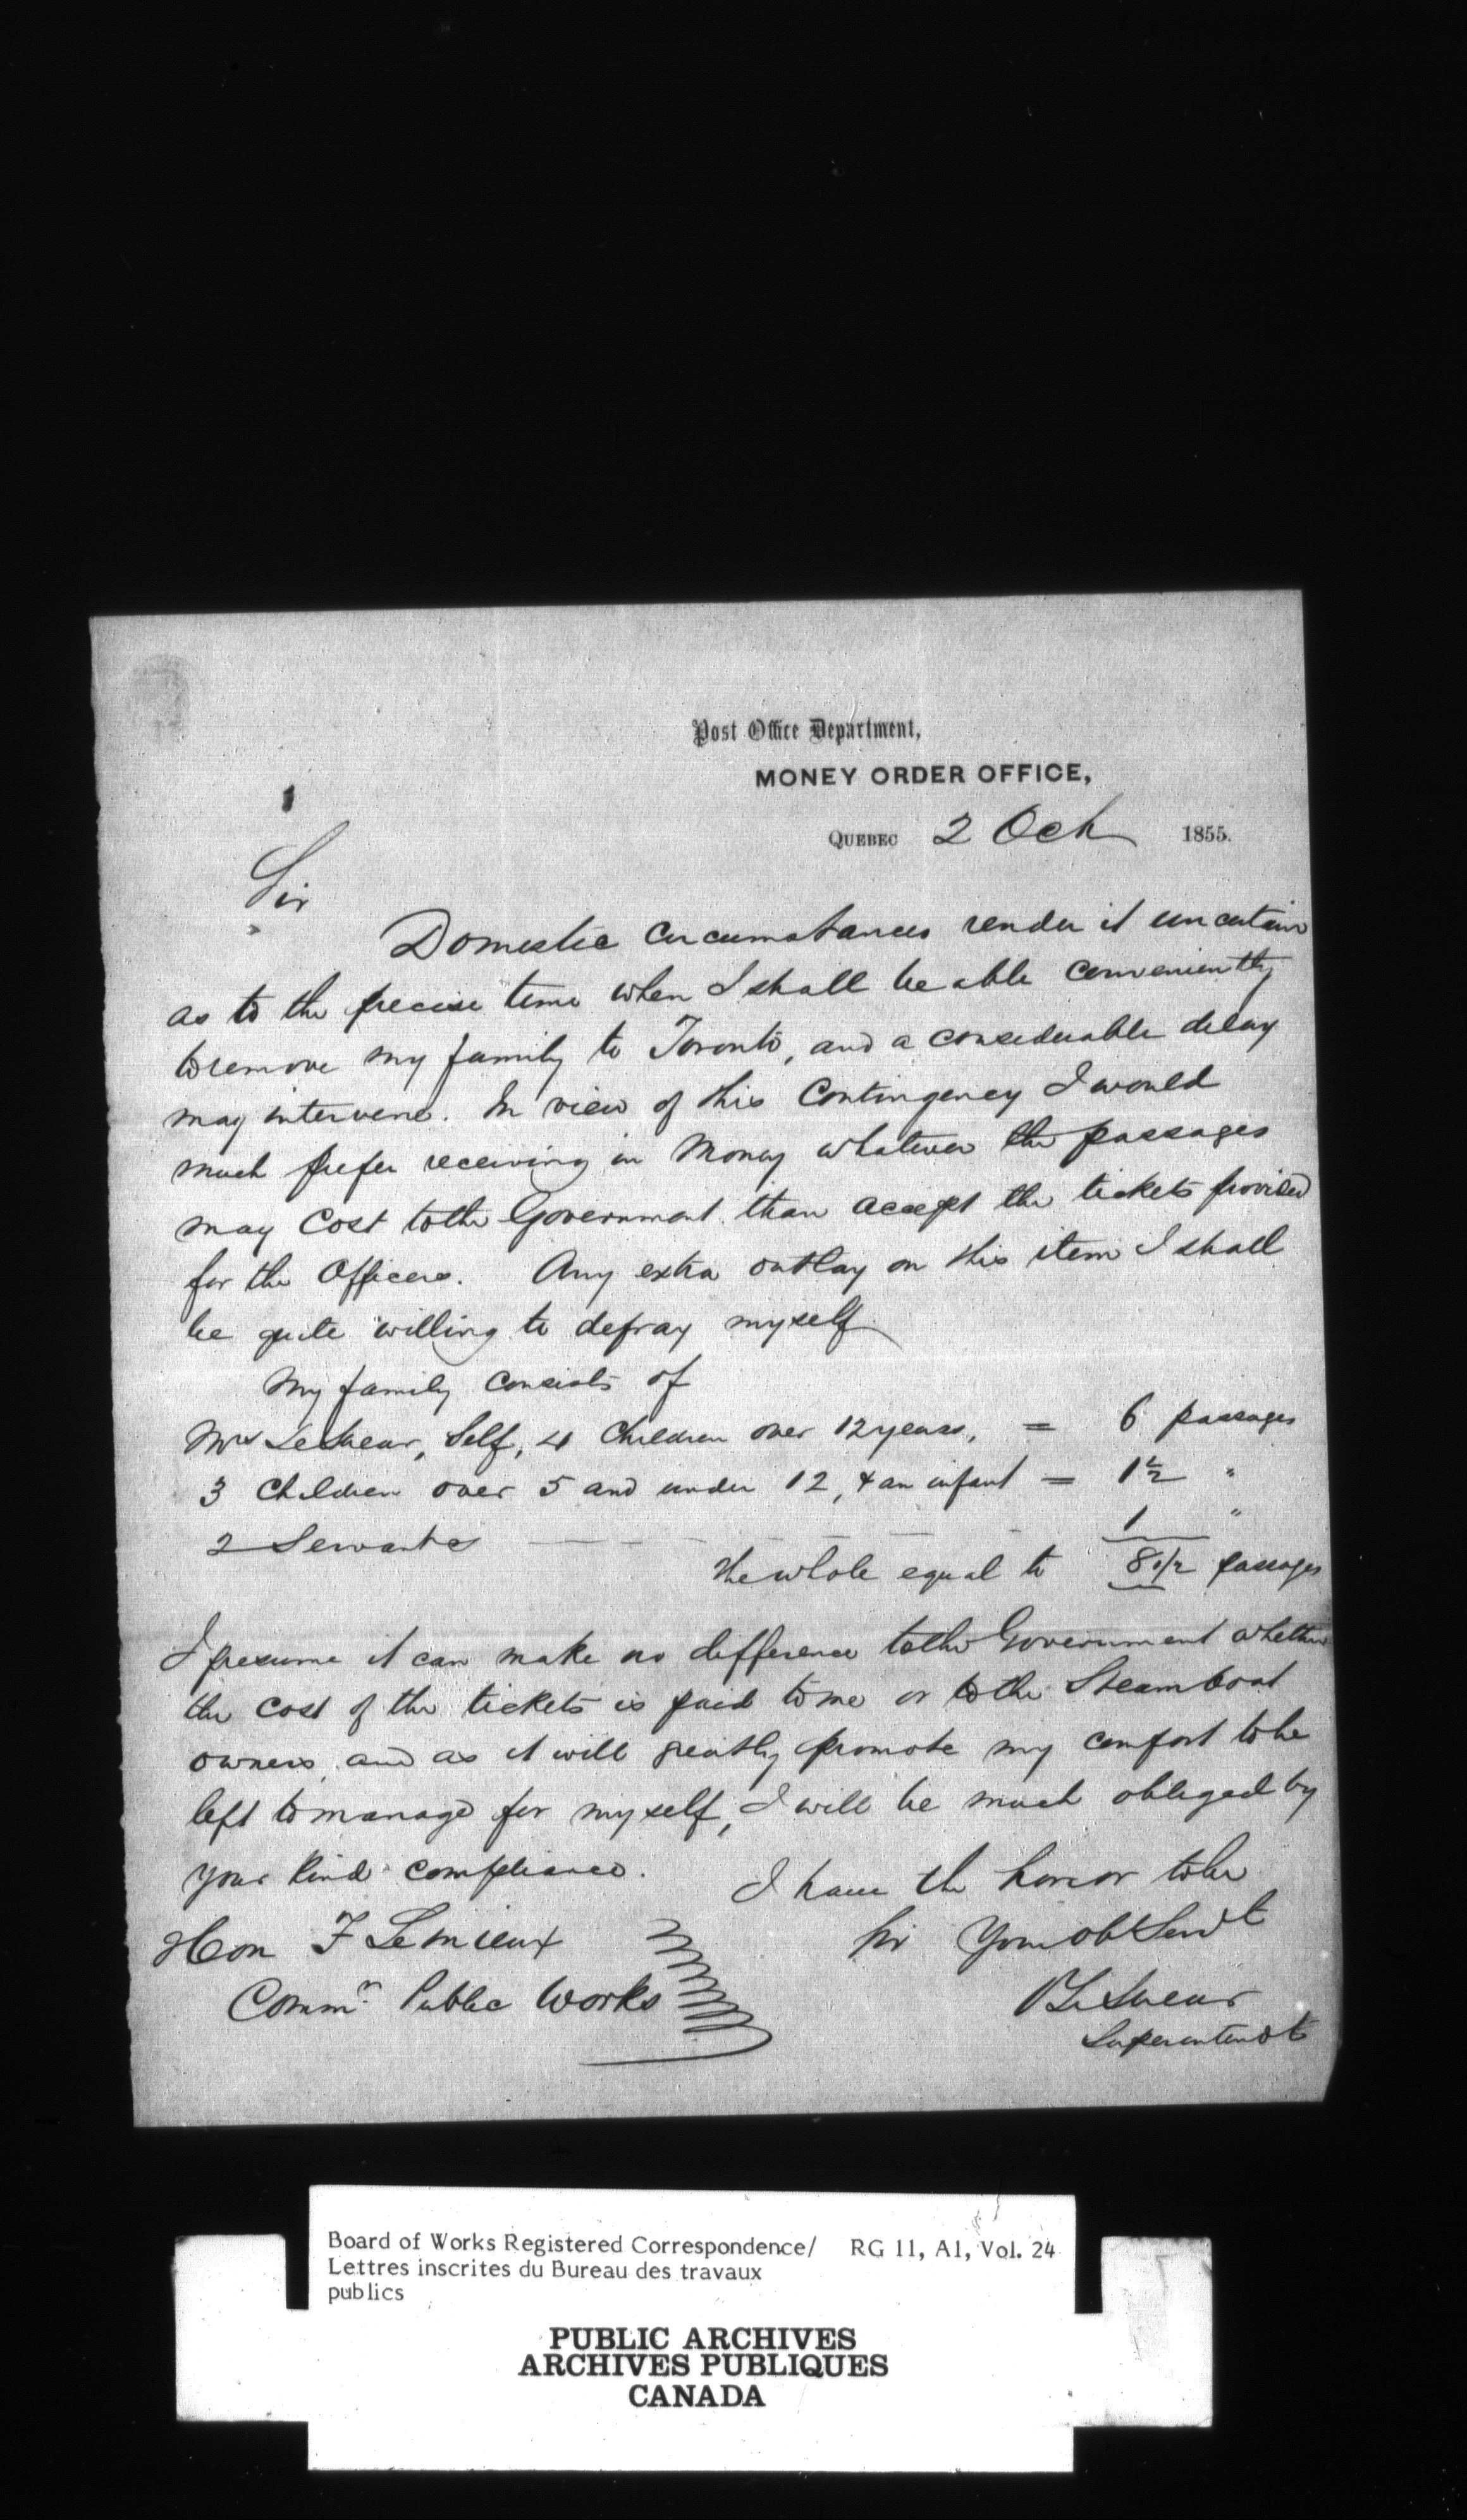 Post Office Department,
MONEY ORDER OFFICE,
QUEBEC 2 Oct 1855.
Sir
Domestic circumstances render it uncertain
as to the precise time when I shall be able conveniently
to remove my family to Toronto, and a considerable delay
may intervene. In view of this Contingency I would
much prefer receiving in Money whatever the passages
may Cost to the Government than accept the tickets provided
for the Officers. Any extra outlay on this item I shall
be quite willing to defray myself.
My family Consists of
Mrs LeSueur, Self, 4 Children over 12 years, = 6 passages
3 Children over 5 and under 12, & an infant = 1½ "
2 Servants 1 "
The whole equal to 8 1/2 passages
I presume it can make no difference to the Government whether
the Cost of the tickets is paid to me or to the Steamboat
owners, and as it will greatly promote my comfort to be
left to manage for myself, I will be much obliged by
your kind compliance.
I have the honor to be
Sir Your ob Servt
Hon F Lemieux
Commr Public Works
P LeSueur
Superintendt
Board of Works Registered Correspondence/ RG 11, A1, Vol. 24
Lettres inscrites du Bureau des travaux
publics
PUBLIC ARCHIVES
ARCHIVES PUBLIQUES
CANADA